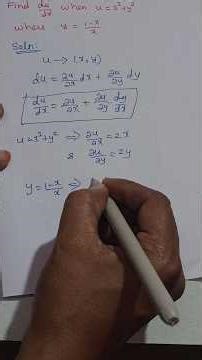 Find du/dx when u = x²+y²
where y = (1-x)/x
u → (x, y)
du = ∂u/∂x dx + ∂u/∂y dy
du/dx = ∂u/∂x + ∂u/∂y dy/dx
u = x²+y² ⇒ ∂u/∂x = 2x
& ∂u/∂y = 2y
y = (1-x)/x ⇒